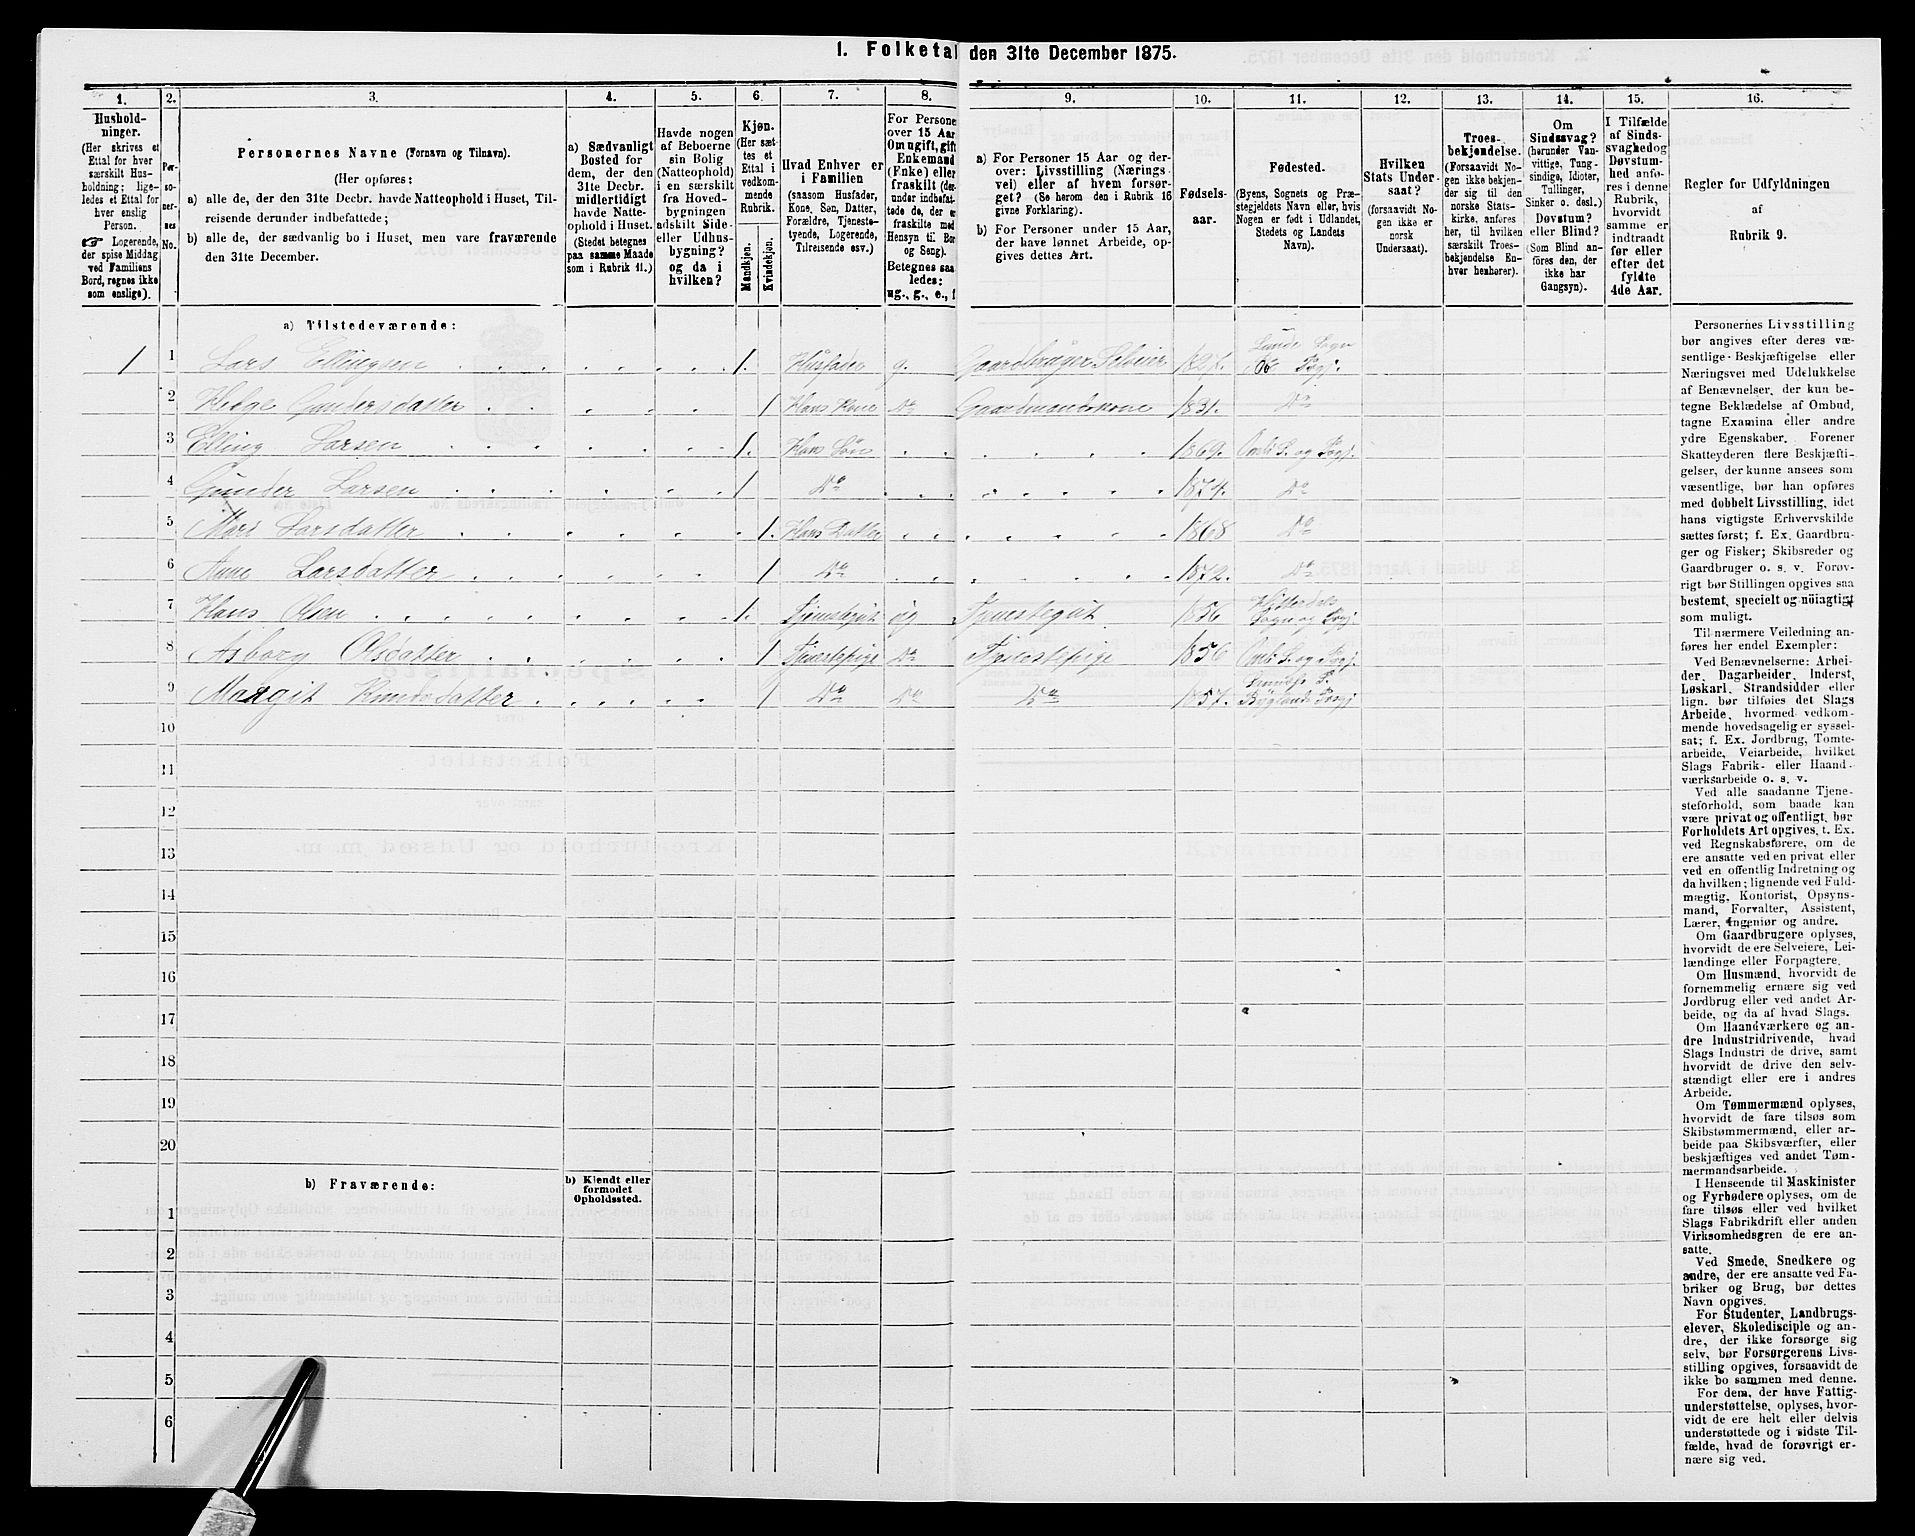 1. Folketal den 31te December 1875.
1.
Hushold-
ninger.
(Her skrives et
Ettal for hver
særskilt Hus-
holdning; lige-
ledes et Ettal for
hver enslig
Person.
☞ Logerende,
der spise Middag
ved Familiens
Bord, regnes ikke
som enslige).
2.
Per-
so-
ner-
nes
No.
3.
Personernes Navne (Fornavn og Tilnavn).
(Her opføres:
a) alle de, der den 31te Decbr. havde Natteophold i Huset, Til-
reisende derunder indbefattede;
b) alle de, der sædvanlig bo i Huset, men vare fraværende
den 31te December.
4.
a) Sædvanligt
Bosted for
dem, der den
31te Decbr.
midlertidigt
havde Natte-
ophold i Huset.
(Stedet betegnes
paa samme Maade
som i Rubrik 11.)
5.
Havde nogen
af Beboerne
sin Bolig
(Natteophold)
i en særskilt
fra Hoved-
bygningen
adskilt Side-
eller Udhus-
bygning?
og da i
hvilken?
6.
Kjøn.
(Her sæt-
tes et
Ettal i
vedkom-
mende
Rubrik.
Mandkjøn.
Kvindekjøn.
7.
Hvad Enhver er
i Familien
(saasom Husfader,
Kone, Søn, Datter,
Forældre, Tjeneste-
tyende, Logerende,
Tilreisende osv.)
8.
For Persone
over 15 Aar
Om ugift, gift
Enkemand
(Enke) eller
fraskilt (der-
under indbefat-
tede de, der er
fraskilte med
Hensyn til Bor
og Seng).
Betegnes saa
ledes:
ug., g., e., f
9.
a) For Personer 15 Aar og der-
over: Livsstilling (Nærings-
vei) eller af hvem forsør-
get? (Se herom den i Rubrik 16
givne Forklaring).
b) For Personer under 15 Aar,
der have lønnet Arbeide, op-
gives dettes Art.
10.
Fødsels-
aar.
11.
Fødested.
(Byens, Sognets og Præ-
stegjeldets Navn eller, hvis
Nogen er født i Udlandet,
Stedets og Landets
Navn).
12.
Hvilken
Stats Under-
saat?
(forsaavidt No-
gen ikke er
norsk
Undersaat).
13.
Troes-
bekjendelse.
(Forsaavidt No-
gen ikke bekjen-
der sig til den
norske Stats-
kirke, anføres
her, til hvilken
særskilt Troes-
bekjendelse En-
hver henhører).
14.
Om
Sindssvag?
(herunder Van-
vittige, Tung-
sindige, Idioter,
Tullinger,
Sinker o. desl.)
Døvstum?
eller Blind?
(Som Blind an-
føres den, der
ikke har
Gangsyn).
15.
I Tilfælde
af Sinds-
svaghed og
Døvstum-
hed anfø-
res i denne
Rubrik,
hvorvidt
samme er
indtraadt
før eller
efter det
fyldte
4de Aar.
16.
Regler for Udfyldningen
af
Rubrik 9.
a) Tilstedeværende:
1 1 Lars Ellingsen 1. Husfader g. Gaardbruger Selveier 1827. Lunde Sogn Bø Prgj.
2 Helge Gundersdatter 1 Hans Kone Do Gaardmandskone 1831. Do
3 Elling Larsen 1. Hans Søn 1869. Omli S. og Prgj.
4 Gunder Larsen 1 Do 1874. Do
5 Mari Larsdatter 1. Hans Datter 1868 Do
6 Anne Larsdatter 1 Do 1872. Do
7 Hans Olsen 1. Tjenestegut ug Tjenestegut 1856 Hitterdals Sogn og Prgj.
8 Asborg Olsdatter 1 Tjenestepige Do Tjenestepige 1856 Omli S. og Prgj.
9 Margit Knudsdatter 1 Do Do Do 1857. S. Byglands Prgj
10
11
12
13
14
15
16
17
18
19
20
b) Fraværende:
b) Kjendt eller
formodet
Opholdssted.
1
2
3
4
5
6
Personernes Livsstilling
bør angives efter deres væ-
sentlige Beskjæftigelse eller
Næringsvei med Udelukkelse
af Benævnelser, der kun be-
tegne Beklædelse af Ombud,
tagne Examina eller andre
ydre Egenskaber. Forener
Skatteyderen flere Beskjæfti-
gelser, der kunne ansees som
væsentlige, bør han opføres
med dobbelt Livsstilling, idet
hans vigtigste Erhvervskilde
sættes først; f. Ex. Gaardbru-
ger og Fisker; Skibsreder og
Gaardbruger o. s. v. Forøv-
rigt bør Stillingen opgives saa
bestemt, specielt og nøiagtigt
som muligt.
Til nærmere Veiledning an-
føres her endel Exempler:
Ved Benævnelserne: Arbei-
der, Dagarbeider, Inderst,
Løskarl, Strandsidder eller
lign. bør tilføies det Slags
Arbeide, hvormed vedkom-
mende hovedsagelig er syssel-
sat; f. Ex. Jordbrug, Tomte-
arbeide, Veiarbeide, hvilket
Slags Fabrik- eller Haand-
værksarbeide o. s. v.
Ved alle saadanne Tjene-
steforhold, som baade kan
være privat og offentligt, bør
Forholdets Art opgives, t. Ex.
ved Regnskabsførere, om de
ere ansatte ved en privat eller
ved en offentlig Indretning og
da hvilken; lignende ved Fuld-
mægtig, Kontorist, Opsyns-
mand, Forvalter, Assistent,
Lærer, Ingeniør og andre.
Om Gaardbrugere oplyses,
hvorvidt de ere Selveiere, Lei-
lændinge eller Forpagtere.
Om Husmænd, hvorvidt de
fornemmelig ernære sig ved
Jordbrug eller ved andet Ar-
beide, og da af hvad Slags.
Om Haandværkere og an-
dre Industridrivende, hvad
Slags Industri de drive, samt
hvorvidt de drive den selv-
stændigt eller ere i andres
Arbeide.
Om Tømmermænd oplyses,
hvorvidt de fare tilsøs som
Skibstømmermænd, eller ar-
beide paa Skibsværfter, eller
beskjæftiges ved andet Tøm-
mermandsarbeide.
I Henseende til Maskinister
og Fyrbødere oplyses, om de
fare tilsøs eller ved hvilket
Slags Fabrikdrift eller anden
Virksomhedsgren de ere an-
satte.
Ved Smede, Snedkere og
andre, der ere ansatte ved Fa-
briker og Brug, bør dettes
Navn opgives.
For Studenter, Landbrugs-
elever, Skoledisciple og an-
dre, der ikke forsørge sig
selv, bør Forsørgerens Livs-
stilling opgives, forsaavidt de
ikke bo sammen med denne.
For dem, der have Fattig-
understøttelse, oplyses, hvor-
vidt de ere helt eller delvis
understøttede og i sidste Til-
fælde, hvad de forøvrigt er-
nære sig ved.